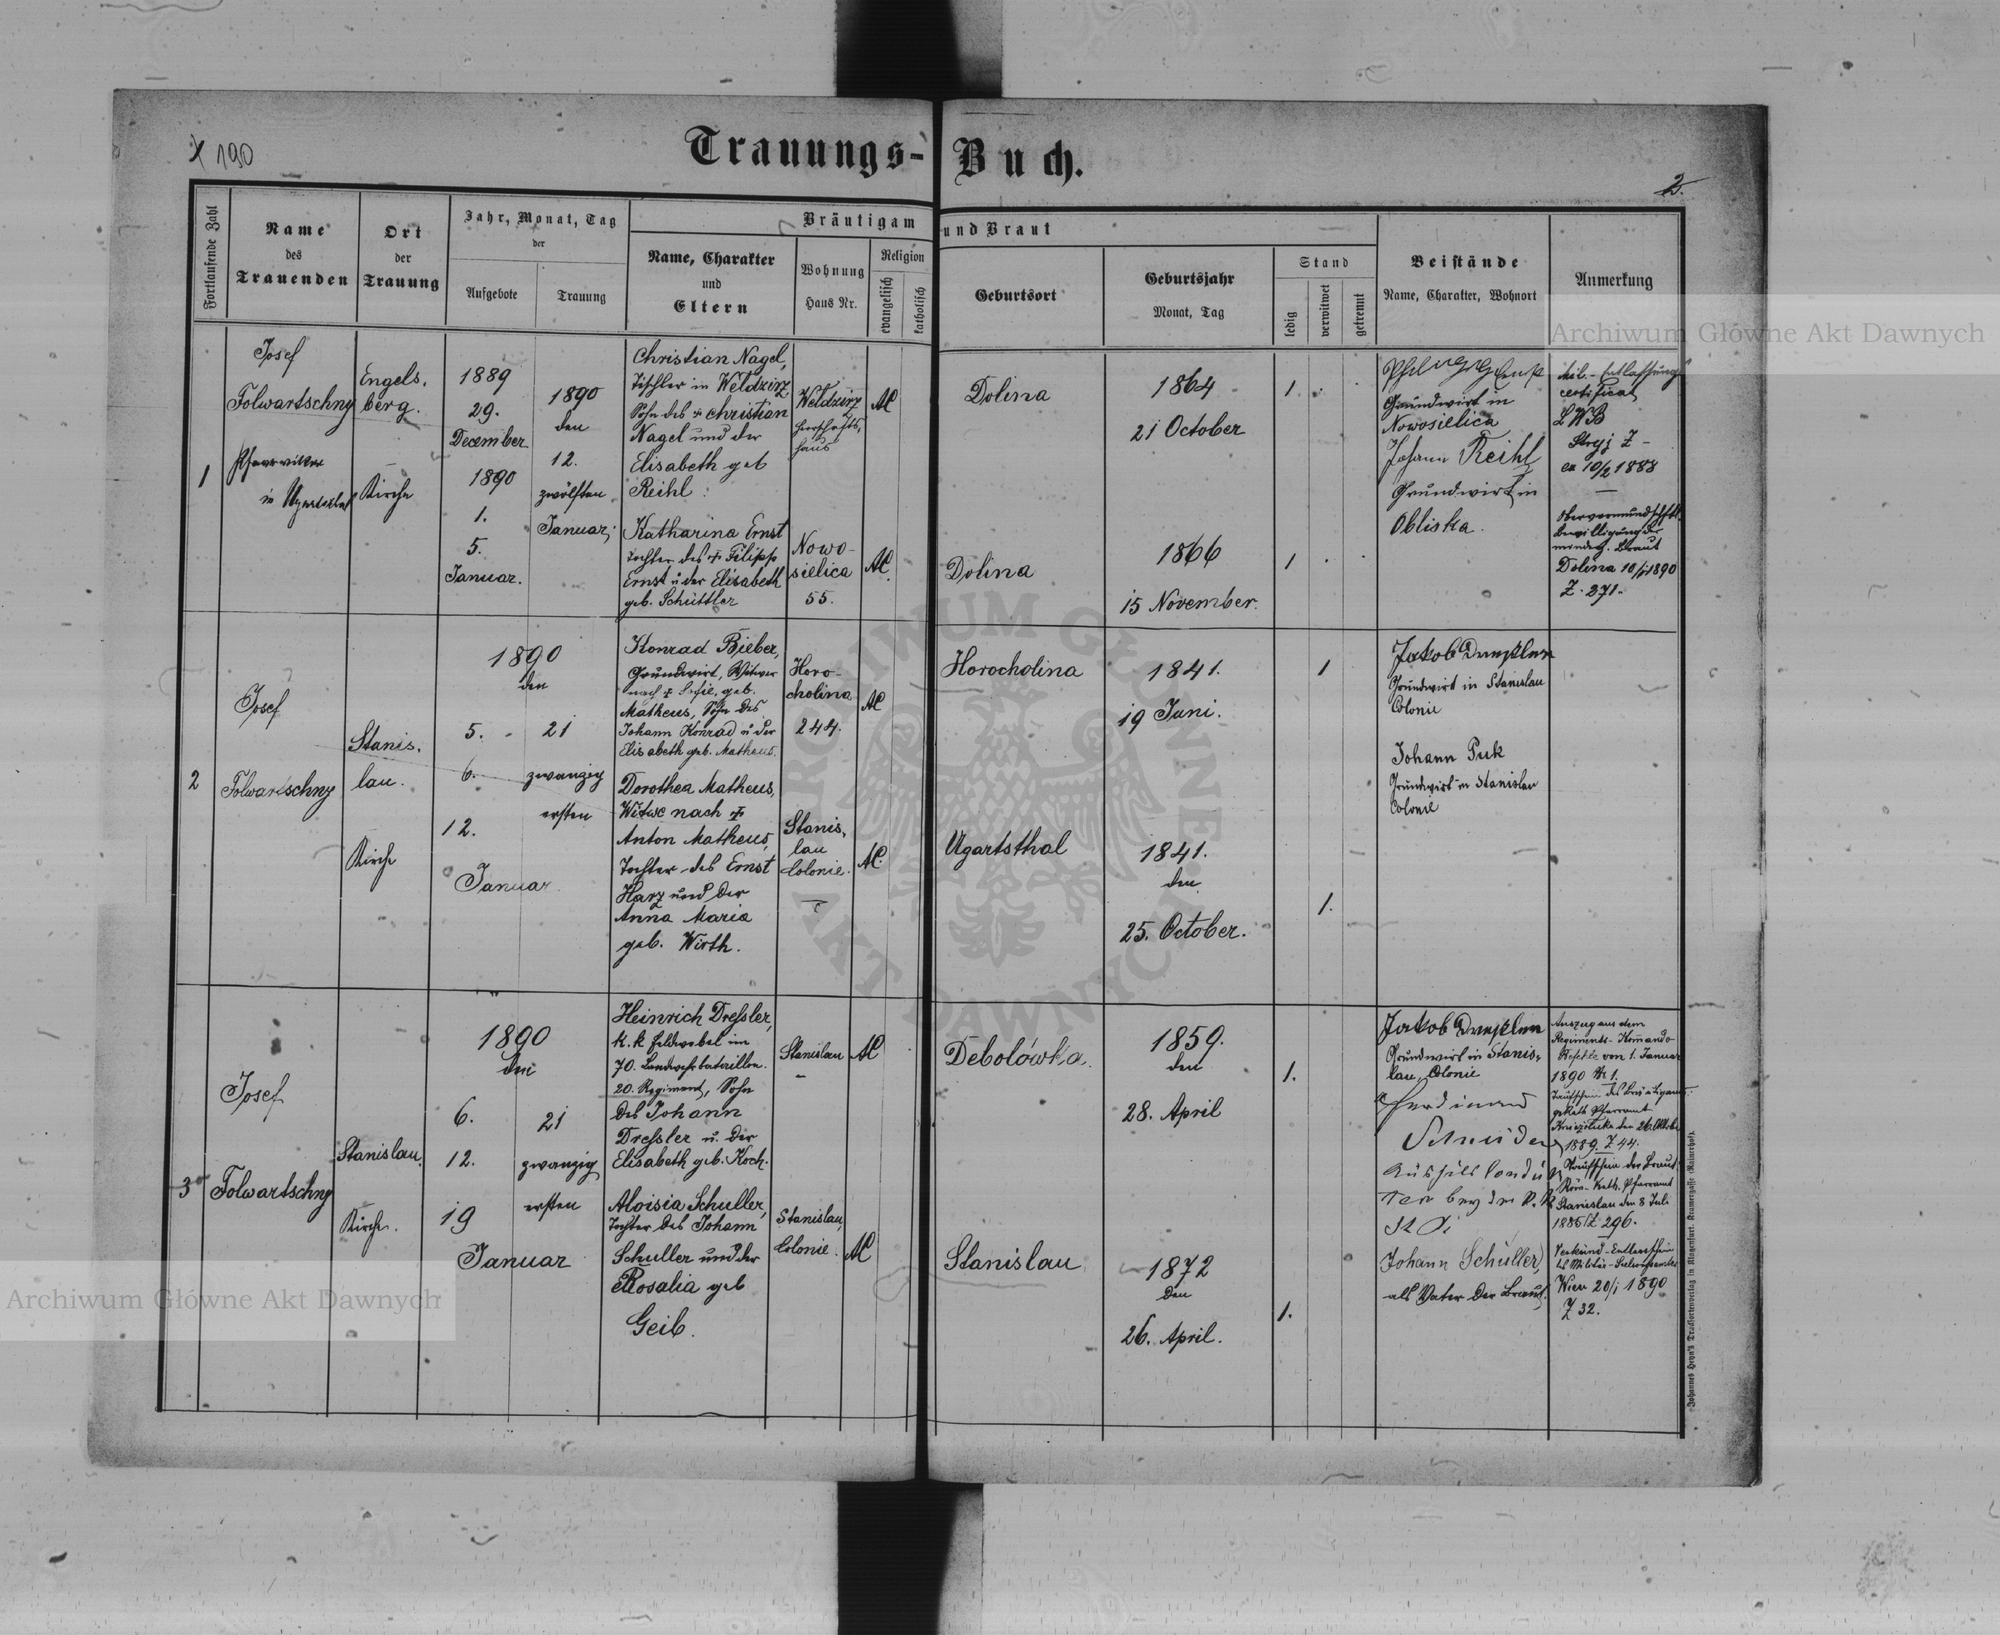 1890
Trauungs-Buch.
2.
Fortlaufende Zahl
Name
des
Trauenden
Ort
der
Trauung
Jahr, Monat, Tag
der
Aufgebote
Trauung
Bräutigam und Braut
Name, Charakter
und
Eltern
Wohnung
Haus Nr.
Religion
evangelisch
katholisch
Geburtsort
Geburtsjahr
Monat, Tag
Stand
ledig
verwitwet
getrennt
Beistände
Name, Charakter, Wohnort
Anmerkung
1
Josef
Folwartschny
Pfarrvikar
in Ugartsthal
Engels,
berg.
Kirche
1889
29.
December
1890
1.
5.
Januar.
1890
den
12.
zwölften
Januar;
Christian Nagel,
Tischler in Weldzirz
Sohn des + Christian
Nagel und der
Elisabeth geb
Reihl.
Weldzirz
Herrschafts,
haus
AC
Dolina
1864
21 October
1
Katharina Ernst
Tochter des + Filipp
Ernst u der Elisabeth
geb. Schüttler
Nowo-
sielica
55.
AC.
Dolina
1866
15 November.
1
Grundwirt in
Nowosielica
Johann Reihl
Grundwirt in
Obliska.
Mil.-Entlassungs
certificat
LWB
Stryj Z-
ex 10/2 1888
Obervormundschftl.
Bewilligung der
minderj. Braut
Dolina 10/1 1890
Z. 271.
2
Josef
Folwartschny
Stanis,
lau.
Kirche
1890
den
5.
6.
12.
Januar
21
zwanzig
ersten
Konrad Bieber,
Grundwirt, Witwer
nach + Sofie, geb.
Matheus, Sohn des
Johann Konrad u der
Elisabeth geb. Matheus.
Horo-
cholina
244.
AC
Horocholina
1841.
19 Juni.
1
Dorothea Matheus,
Witwe nach +
Anton Matheus,
Tochter des Ernst
Harz und der
Anna Maria
geb. Wirth.
Stanis,
lau
Colonie.
AC.
Ugartsthal
1841.
den
25. October.
1.
Jakob
Grundwirt in Stanislau
Colonie
Johann Puk
Grundwirt in Stanislau
Colonie
3
Josef
Folwartschny
Stanislau.
Kirche.
1890
den
6.
12.
19
Januar
21
zwanzig
ersten
Heinrich Dressler,
k. k Feldwebel im
70. Landwehrbataillon.
20. Regiment, Sohn
des Johann
Dressler u. der
Elisabeth geb. Koch.
Stanislau
AC
Debolówka
1859.
den
28. April
1.
Aloisia Schuller,
Tochter des Johann
Schuller und der
Rosalia geb
Geib.
Stanislau,
Colonie.
AC
Stanislau
1872
den
26. April.
1.
Jakob
Grundwirt in Stanis,
lau, Colonie
Ferdinand
Schneider
Johann Schuller,
als Vater der Braut.
Auszug aus dem
Regiments-Komando
Befehle vom 1. Januar
1890 № 1.
Taufschein des Bräutigams
Pfarramt
den 26. Oktober
1889. Z 44.
Taufschein der Braut
Röm.-Kath. Pfarramt
Stanislau den 8 Juli
1885 Z 296.
Wien 20/1 1890
Z 32.
Johannes Heyn's Drucksortenverlag in Klagenfurt, Kramergasse (Rainerhof).
Archiwum Główne Akt Dawnych
Archiwum Główne Akt Dawnych
ARCHIWUM GŁÓWNE AKT DAWNYCH